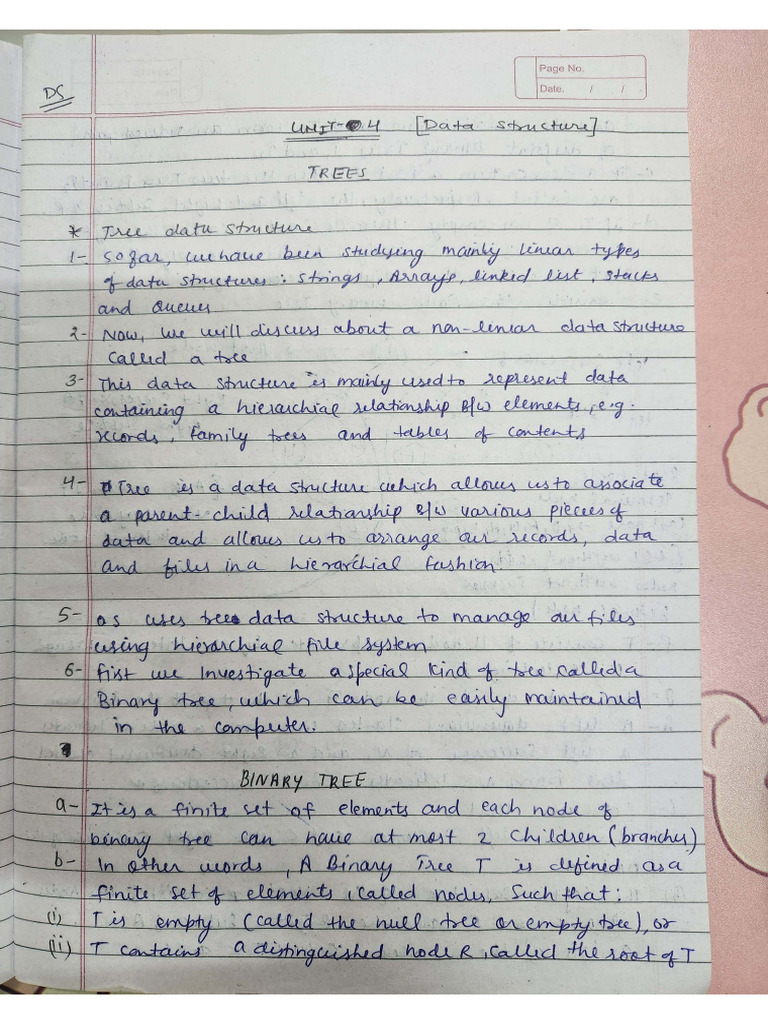 Page No.
Date. / /
DS
UNIT-4 [Data Structure]
TREES
* Tree data structure
1- So far, we have been studying mainly linear types
of data structures: strings, Arrays, linked list, stacks
and Queues
2- Now, we will discuss about a non-linear data structure
called a tree
3- This data structure is mainly used to represent data
containing a hierarchial relationship B/W elements, e.g.
records, family trees and tables of contents
4- Tree is a data structure which allows us to associate
a parent-child relationship B/W various pieces of
data and allows us to arrange our records, data
and files in a hierarchial fashion.
5- OS uses tree data structure to manage our files
using hierarchial file system
6- first we Investigate a special kind of tree called a
Binary tree, which can be easily maintained
in the computer.
BINARY TREE
a- It is a finite set of elements and each node of
binary tree can have at most 2 children (branches)
b- In other words, A Binary Tree T is defined as a
finite set of elements, called nodes, such that:
(i) T is empty (called the null tree or empty tree), or
(ii) T contains a distinguished node R, called the root of T